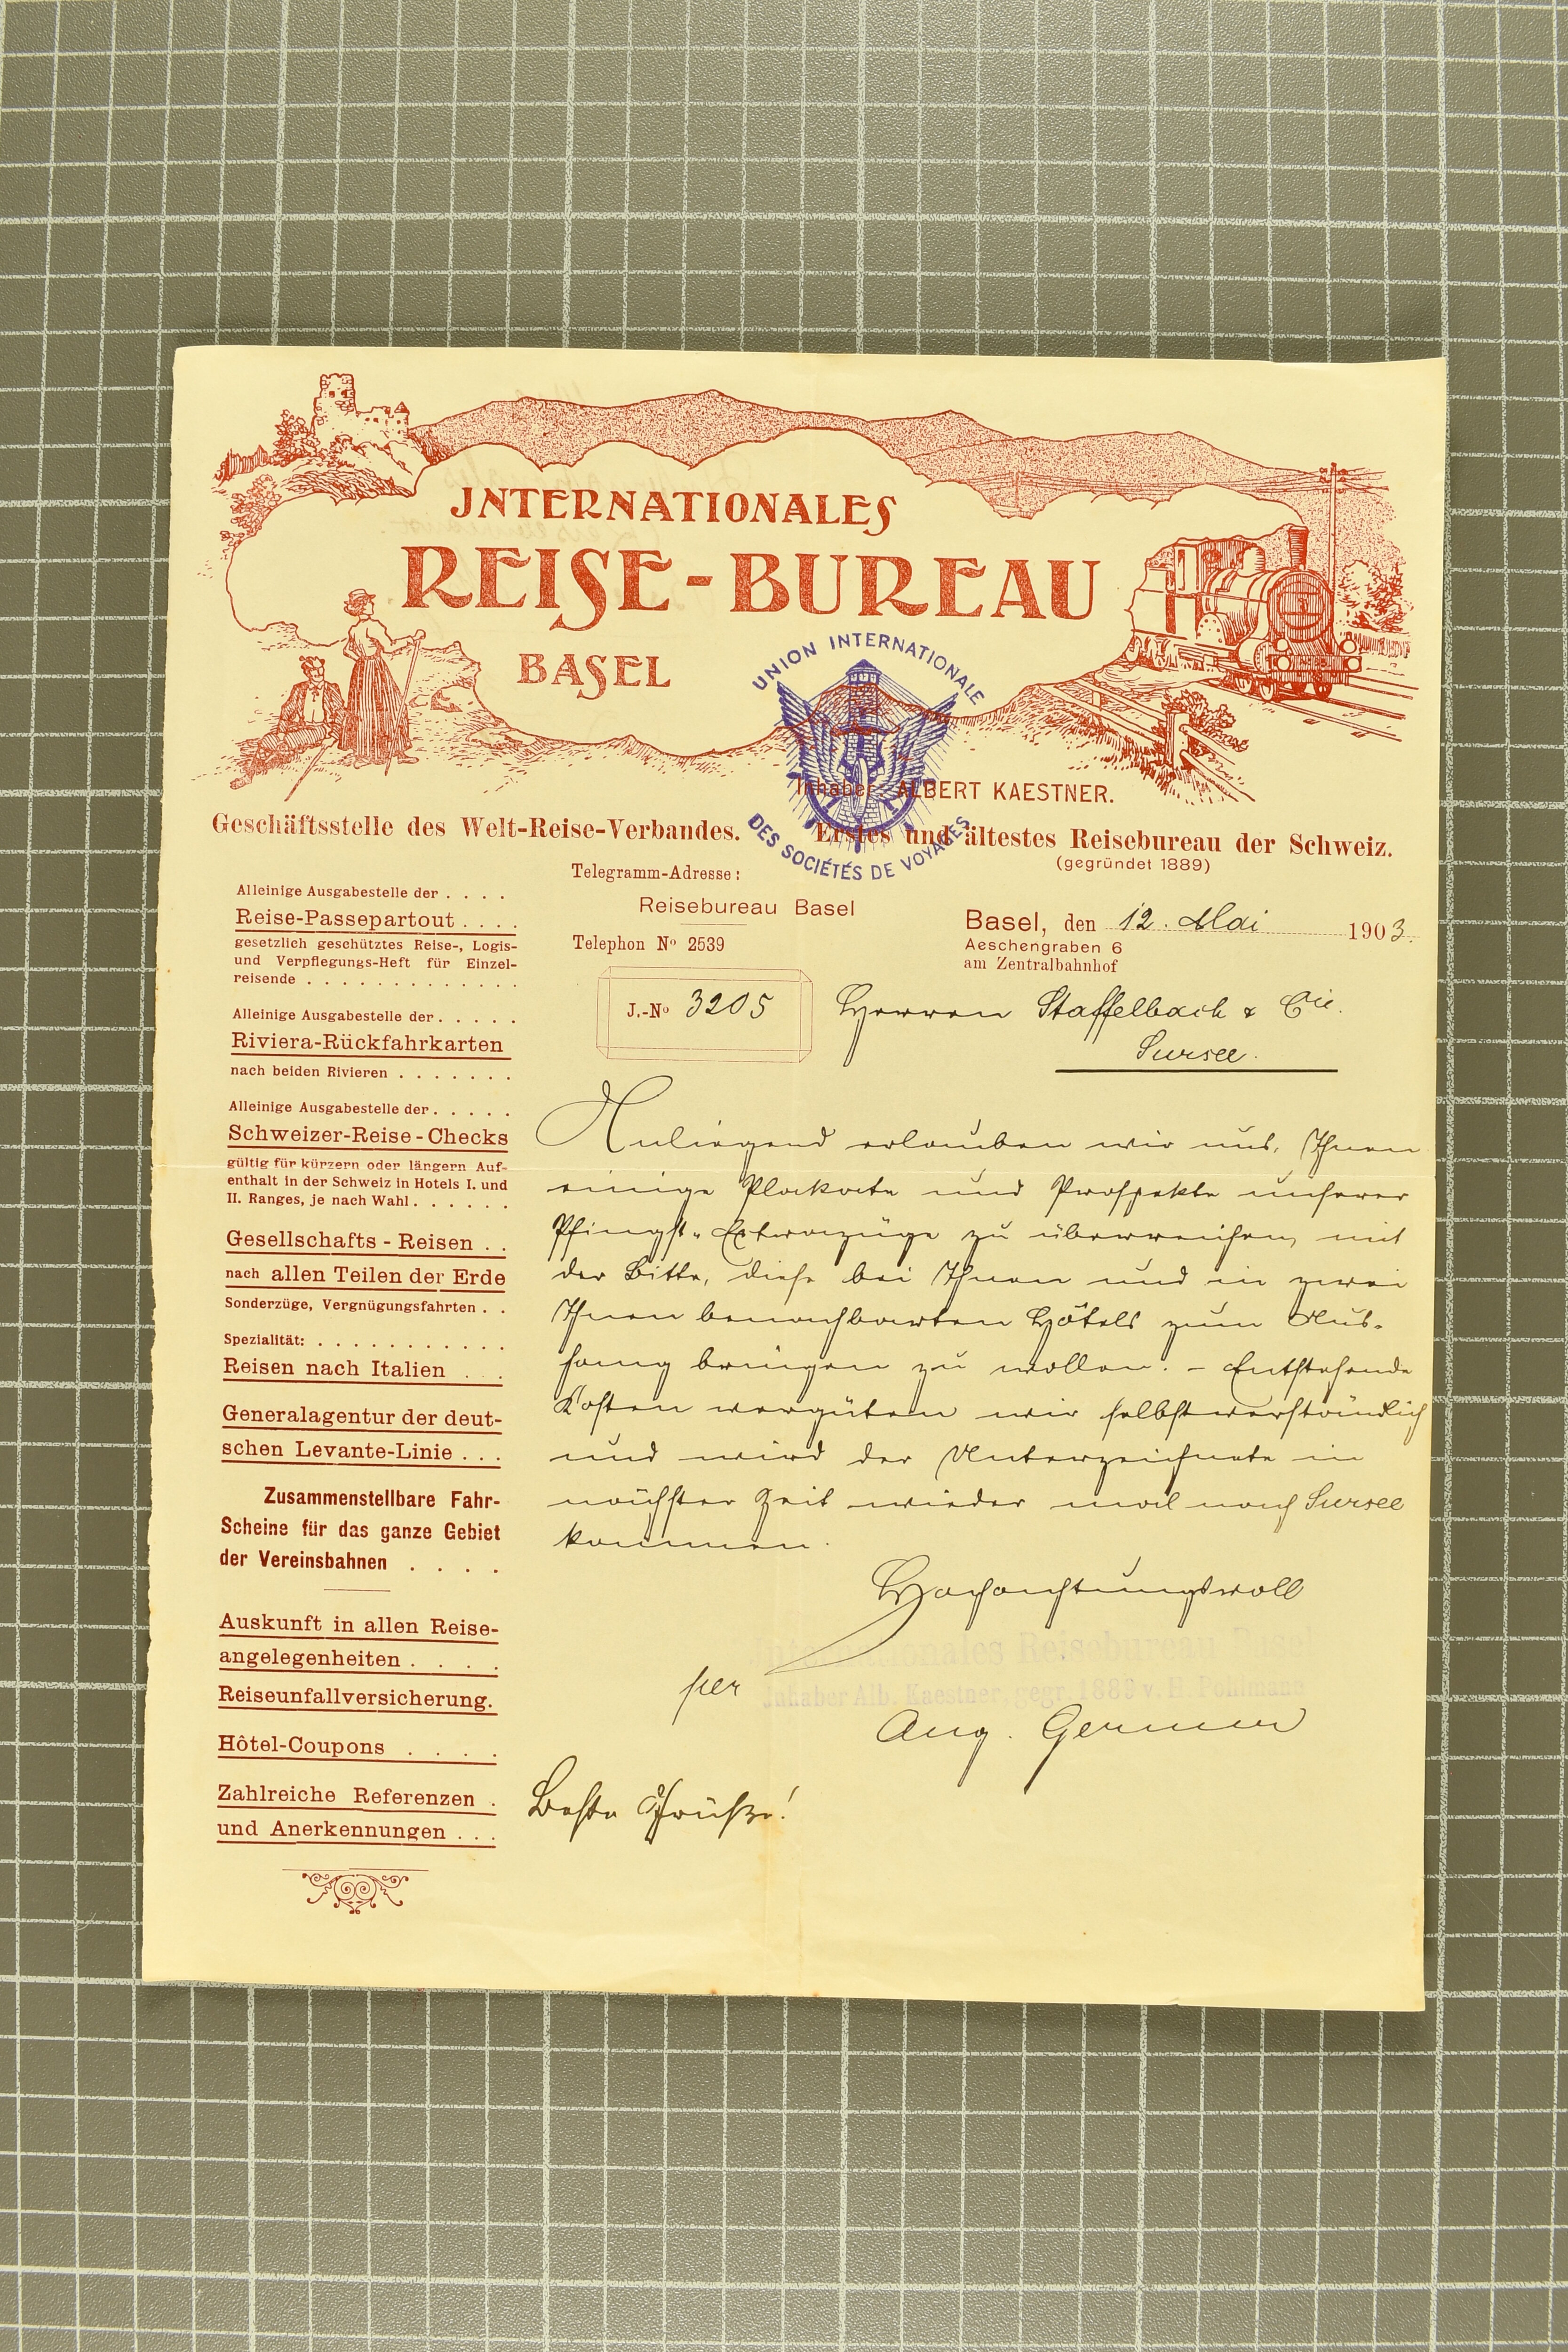 JNTERNATIONALES
REISE-BUREAU
BASEL
UNION INTERNATIONALE
DES SOCIÉTÉS DE VOYAGES
Inhaber: ALBERT KAESTNER.
Geschäftsstelle des Welt-Reise-Verbandes. Erstes und ältestes Reisebureau der Schweiz.
(gegründet 1889)
Telegramm-Adresse:
Reisebureau Basel
Telephon No 2539
Basel, den 12. Mai 1903.
Aeschengraben 6
am Zentralbahnhof
J.-No 3205
Herren Staffelbach & Cie.
Sursee.
Alleinige Ausgabestelle der . . . .
Reise-Passepartout . . . .
gesetzlich geschütztes Reise-, Logis-
und Verpflegungs-Heft für Einzel-
reisende . . . . . . . . . . . . .
Alleinige Ausgabestelle der . . . . .
Riviera-Rückfahrkarten
nach beiden Rivieren . . . . . . .
Alleinige Ausgabestelle der . . . . .
Schweizer-Reise-Checks
gültig für kürzern oder längern Auf-
enthalt in der Schweiz in Hotels I. und
II. Ranges, je nach Wahl . . . . . .
Gesellschafts-Reisen . .
nach allen Teilen der Erde
Sonderzüge, Vergnügungsfahrten . .
Spezialität: . . . . . . . . . . .
Reisen nach Italien . . .
Generalagentur der deut-
schen Levante-Linie . . .
Zusammenstellbare Fahr-
Scheine für das ganze Gebiet
der Vereinsbahnen . . . .
Auskunft in allen Reise-
angelegenheiten . . . .
Reiseunfallversicherung.
Hôtel-Coupons . . . .
Zahlreiche Referenzen .
und Anerkennungen . . .
Anliegend erlauben wir uns, Ihnen
einige Plakate und Prospekte unserer
Pfingst-Extrazüge zu überreichen, mit
der Bitte, diese bei Ihnen und in zwei
Ihnen benachbarten Hôtels zum Aus-
hang bringen zu wollen. - Entstehende
Kosten vergüten wir selbstverständlich
und wird der Unterzeichnete in
nächster Zeit wieder mal nach Sursee
kommen.
Hochachtungsvoll
Internationales Reisebureau Basel
Inhaber Alb. Kaestner, gegr. 1889 v. H. Pohlmann
per
Aug. Germer
Beste Grüße!